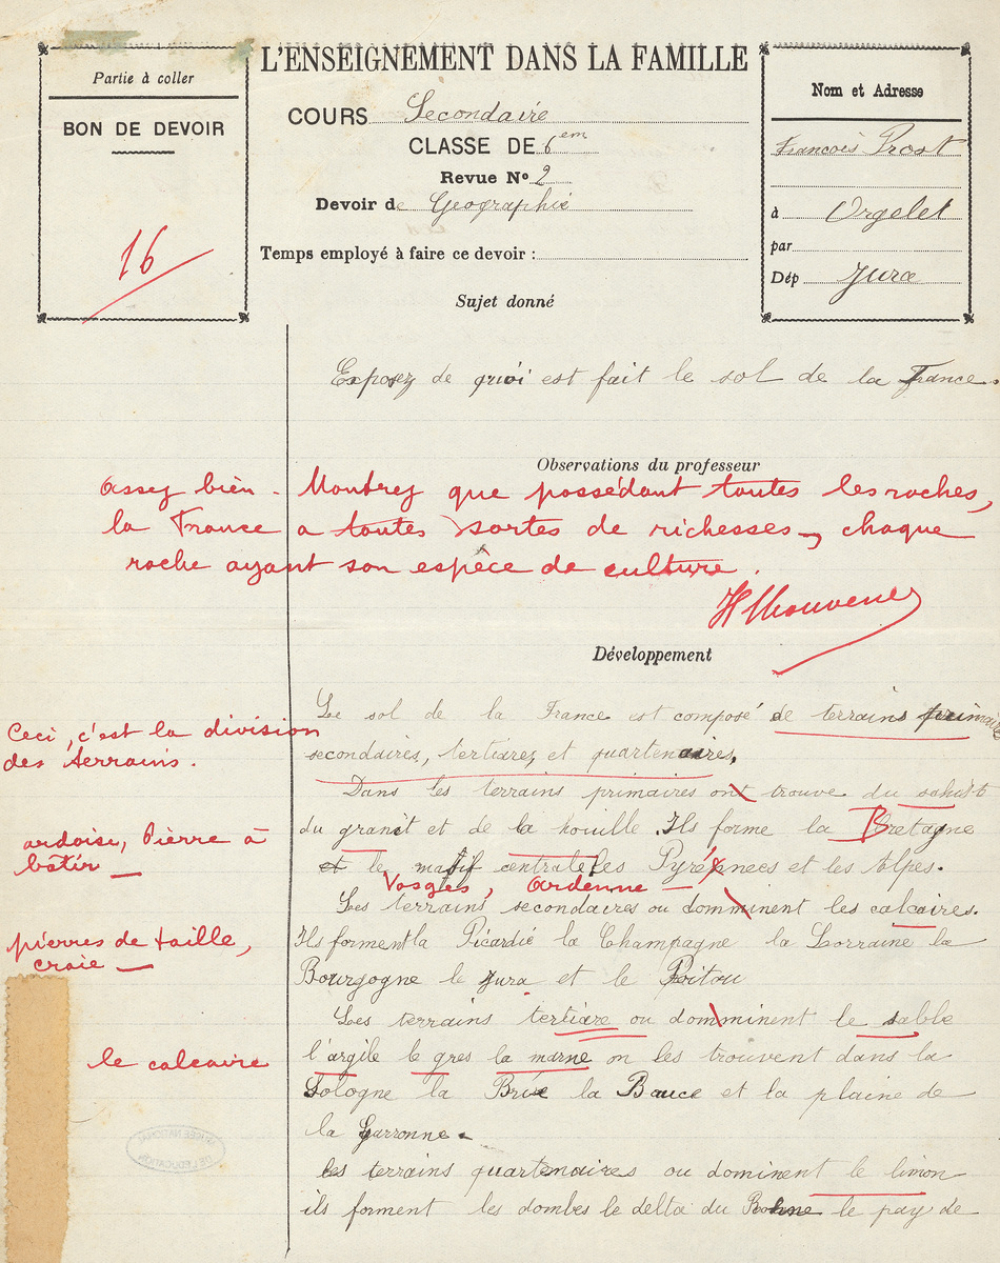 L'ENSEIGNEMENT DANS LA FAMILLE
Partie à coller
BON DE DEVOIR
16
COURS Secondaire
CLASSE DE 6em
Revue No 2
Devoir de Geographie
Temps employé à faire ce devoir :
Sujet donné
Nom et Adresse
Francois Prost
à Orgelet
par
Dép Jura
Exposez de quoi est fait le sol de la France.
Observations du professeur
assez bien - Montrez que possédant toutes les roches,
la France a toutes sortes de richesses, chaque
roche ayant son espèce de culture.
Développement
Le sol de la France est composé de terrains primaires
Ceci, c'est la division
des terrains.
secondaires, tertiaires, et quartenaires.
Dans les terrains primaires ont trouve du schist
du granit et de la houille. Ils forme la Bretagne
ardoise, Pierre à
bâtir
et le massif centrale les Pyrénnées et les Alpes.
Vosges, Ardenne
Les terrains secondaires ou domminent les calcaires.
Ils forment la Picardie la Champagne la Lorraine la
pierres de taille,
craie
Bourgogne le Jura et le Poitou
Les terrains tertiaire ou domminent le sable
l'argile le gres la marne on les trouvent dans la
le calcaire
Sologne la Brie la Bauce et la plaine de
la Garronne.
les terrains quartenaires ou dominent le limon
ils forment les dombes le delta du Rohne le pay de
MUSÉE NATIONAL
DE L'ÉDUCATION